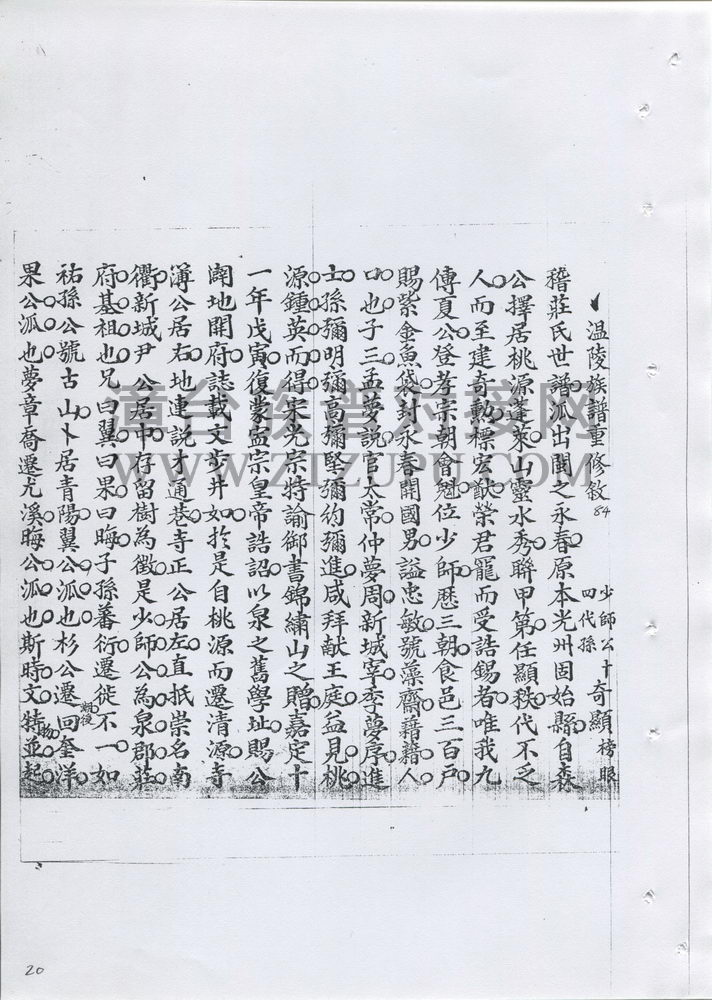 温陵族譜重修敘84
少師公十
四代孫
奇顯榜眼
稽莊氏世譜派出閩之永春原本光州固始縣自森
公擇居桃源蓬萊山靈水秀聯甲第任顯秩代不乏
人而至建奇勲標宏猷榮君寵而受誥錫者唯我九
傳夏公登孝宗朝會魁位少師歷三朝食邑三百戶
賜紫金魚袋封永春開國男謚忠敏號藻齋藉藉人
口也子三孟夢說官太常仲夢周新城宰季夢序進
士孫彌明彌高彌堅彌約彌進咸拜献王庭益見桃
源鍾英而得宋光宗特諭御書錦繡山之贈嘉定十
一年戊寅復蒙寧宗皇帝誥詔以泉之舊學址賜公
闢地開府誌載文步井如於是自桃源而遷清源寺
簿公居右地連說才通巷寺正公居左直抵崇名南
衢新城尹公居中存留樹為徵是少師公為泉郡莊
府基祖也兄曰翼曰果曰晦子孫蕃衍遷徙不一如
祐孫公號古山卜居青陽翼公派也杉公遷回奎洋
果公派也夢章喬遷尤溪晦公派也斯時文特並起
漳台族譜对接网
WWW.ZTZUPU.COM
20